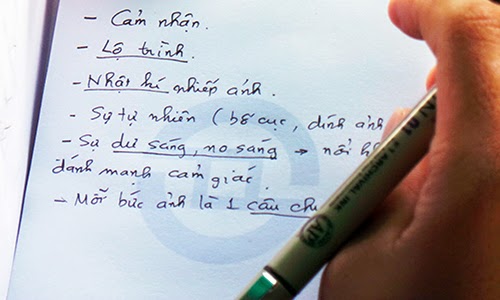 - Cảm nhận.
- Lộ trình.
- Nhật kí nhiếp ảnh.
- Sự tự nhiên (bố cục, dính ảnh
- Sự dư sáng, no sáng → nổi
đánh mạnh cảm giác.
- Mỗi bức ảnh là 1 câu
ARCHIVAL INK
AP